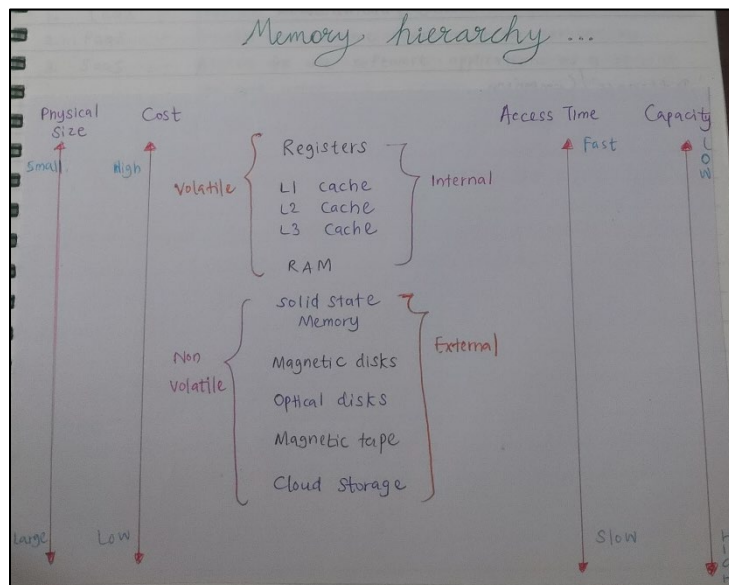 Memory hierarchy ...
Physical Size
Cost
Access Time
Capacity
Small
High
Fast
LOW
Volatile
Registers
L1 cache
L2 Cache
L3 Cache
RAM
Internal
Non volatile
solid state
Memory
Magnetic disks
Optical disks
Magnetic tape
Cloud Storage
External
Large
Low
Slow